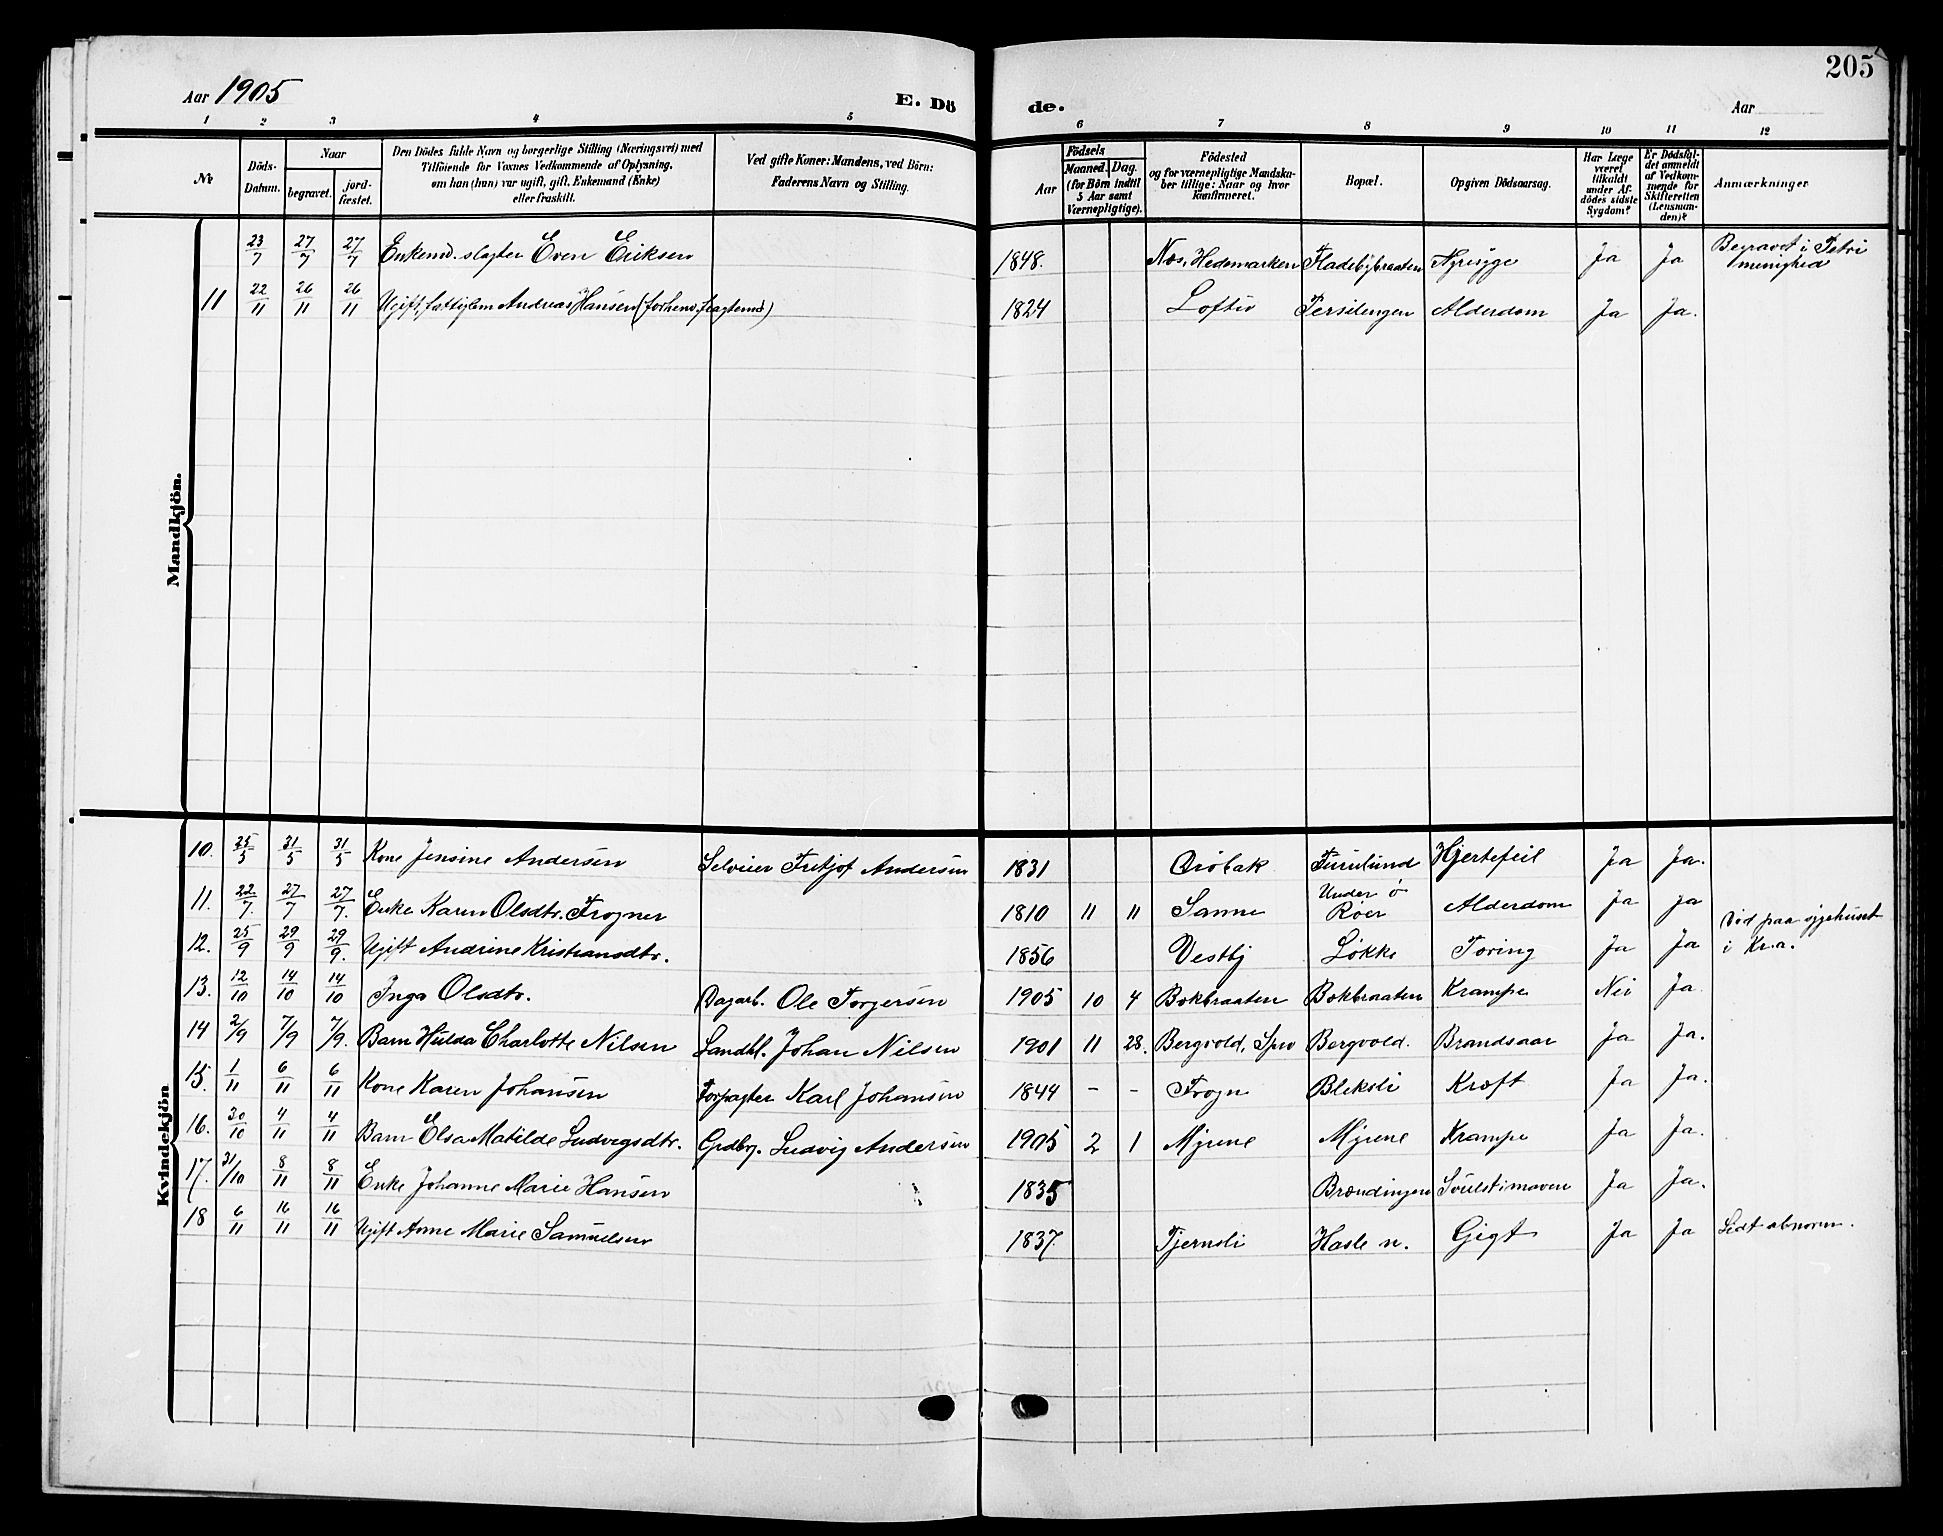 205
Aar 1905
E. Dö de.
Aar
1 2 3 4 5 6 7 8 9 10 11 12
№
Döds-Datum.
Naar
begravet.
jord-fæstet.
Den Dödes fulde Navn og borgerlige Stilling (Næringsvei) med
Tilföiende for Voxnes Vedkommende af Oplysning,
om han (hun) var ugift, gift, Enkemand (Enke)
eller fraskilt.
Ved gifte Koner: Mandens, ved Börn:
Faderens Navn og Stilling.
Födsels
Aar
Maaned. Dag.
(for Börn indtil
5 Aar samt
Værnepligtige).
Födested
og for værnepligtige Mandska-
ber tillige: Naar og hvor
konfirmeret.
Bopæl.
Opgiven Dödsaarsag.
Har Læge
været
tilkaldt
under Af-
dödes sidste
Sygdom?
Er Dödsfal-
det anmeldt
af Vedkom-
mende for
Skifteretten
(Lensman-
den)?
Anmærkninger
Mandkjön.
23/7 27/7 27/7 Enkemd. slagter Even Eriksen 1848. Nes, Hedemarken Fladebybraaten Nyresyge Ja Ja Begravet i Petri menighed
11 22/11 26/11 26/11 Ugift, fattiglem Andreas Hansen (forhenv. fragtemd) 1824 Loftu Persilengen Alderdom Ja Ja.
Kvindekjön
10. 25/5 31/5 31/5 Kone Jensine Andersen Selveier Fritjof Andersen 1831 Drøbak Furulund Hjertefeil Ja Ja.
11. 22/7. 27/7 27/7. Enke Karen Olsdtr. Frogner 1810 11 11 Sanne Under ø Røer Alderdom Ja Ja
12. 25/9 29/9 29/9. Ugift Andrine Kristiansdtr. 1856 Vestby Løkke Tæring Ja Ja Død paa sygehuset i Kr.a.
13. 12/10 14/10 14/10 Inga Olsdtr. Dagarb. Ole Torgersen 1905 10 4 Bokbraaten Bokbraaten Krampe Nei Ja
14 2/9 7/9 7/9. Barn Hulda Charlotte Nilsen Landhl. Johan Nilsen 1901 11 28. Bergvold, Spro Bergvold. Brandsaar Ja Ja.
15. 1/11 6/11 6/11 Kone Karen Johansen Forpagter Karl Johansen 1844 - - Frogn Bleksli Kræft Ja Ja.
16. 30/10 4/11 4/11 Barn Elsa Matilde Ludvigsdtr. Grdbr. Ludvig Andersen 1905 2 1 Myrene Myrene Krampe Ja Ja.
17. 31/10 8/11 8/11 Enke Johanne Marie Hansen 1835 Brændingen Svulst i maven Ja Ja.
18 6/11 16/11 16/11 Ugift Anne Marie Samuelsen 1837. Tjernsli Hasle n. Gigt Ja Ja Lidt abnorm.